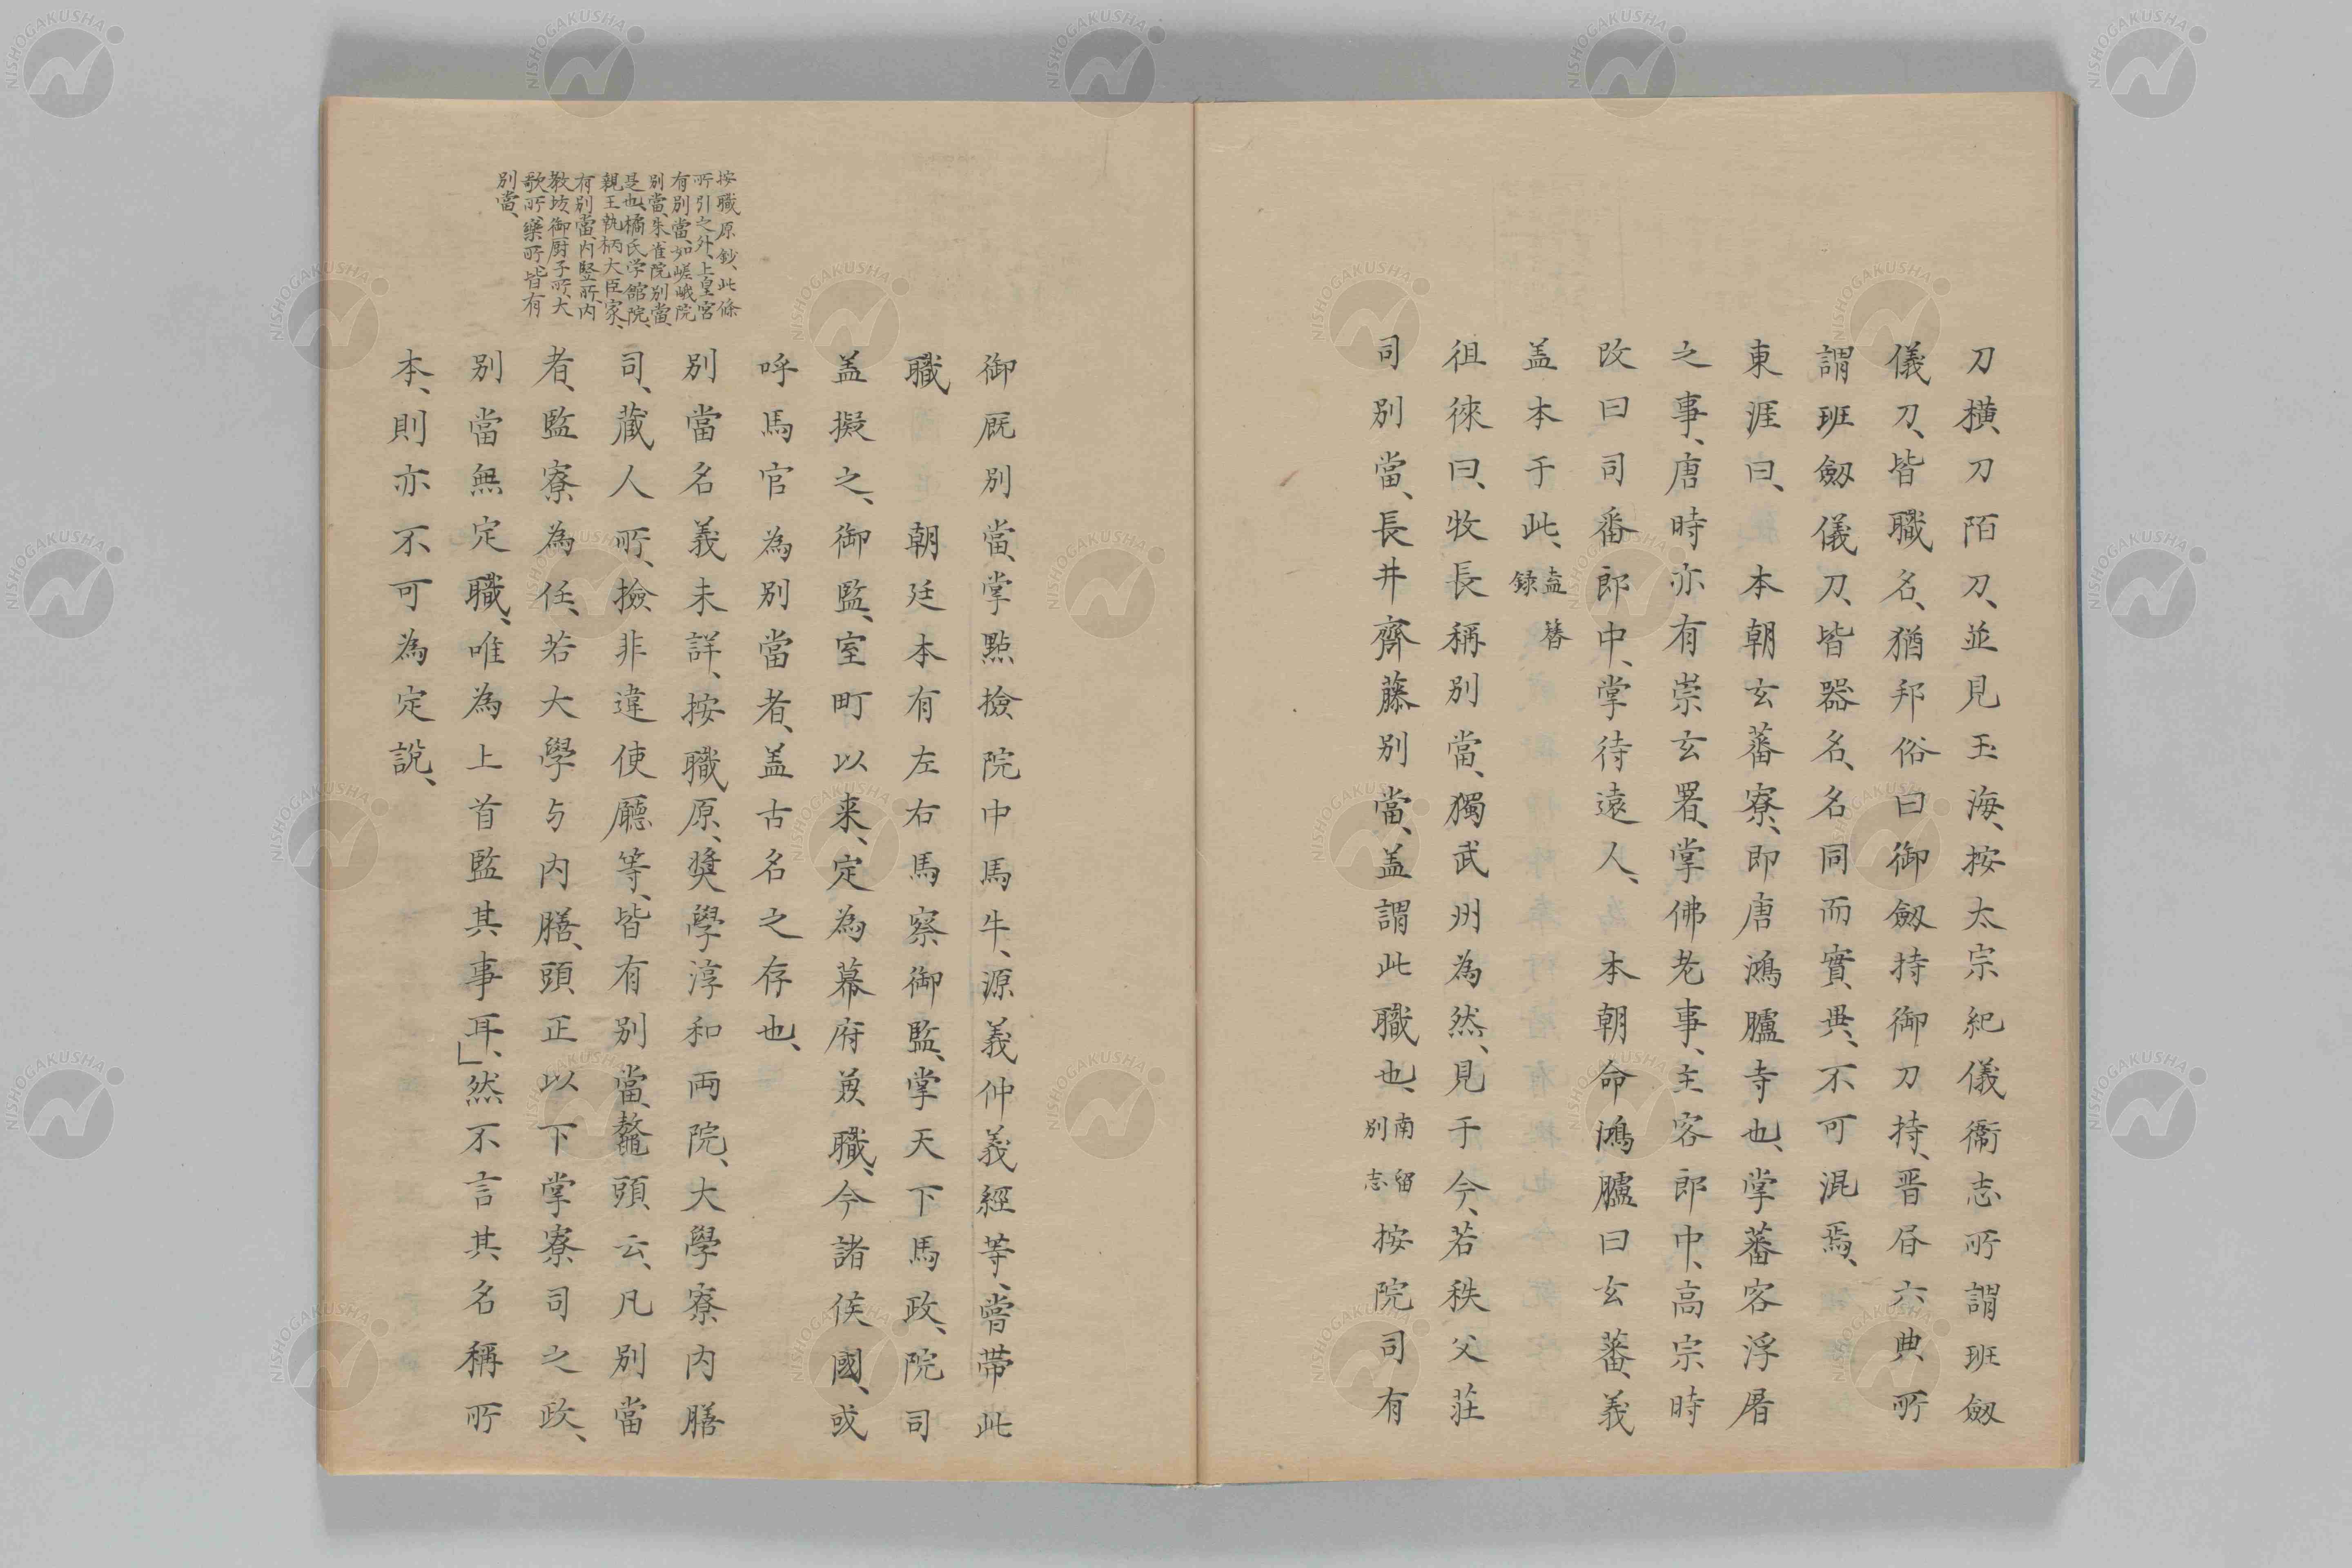 刀橫刀陌刀、並見玉海、按太宗紀儀衞志所謂班劔
儀刀、皆職名、猶邦俗曰御劔持御刀持、晋唐六典所
謂班劔儀刀、皆器名、名同而實異、不可混焉、
東涯曰、本朝玄蕃寮、即唐鴻臚寺也、掌蕃客浮屠
之事、唐時亦有崇玄署、掌佛老事、主客郎中、高宗時
改曰司番郎中、掌待遠人、本朝命鴻臚曰玄蕃、義
盖本于此、盍簪録
徂徠曰、牧長稱別當、獨武州為然、見于今、若秩父莊
司別當、長井齊藤別當、盖謂此職也、南留別志按院司有
御厩別當、掌點撿院中馬牛、源義仲義經等、嘗帯此
職朝廷本有左右馬寮御監、掌天下馬政、院司
盖擬之、御監、室町以来、定為幕府兼職、今諸侯國、或
呼馬官為別當者、盖古名之存也、
別當名義未詳、按職原、奨學淳和両院、大學寮内膳
司、蔵人所、撿非違使廳等、皆有別當、鼇頭云、凡別當
者、監寮為任、若大學与内膳、頭正以下掌寮司之政、
別當無定職、唯為上首監其事耳、」然不言其名稱所
本、則亦不可為定説、
按職原鈔、此條
所引之外、上皇宮
有別當、如嵯峨院
別當、朱雀院別當、
是也、橘氏学館院、
親王執柄大臣家、
有別當、内竪所、内
教坊、御厨子所、大
歌所、樂所、皆有
別當、
NISHOGAKUSHA